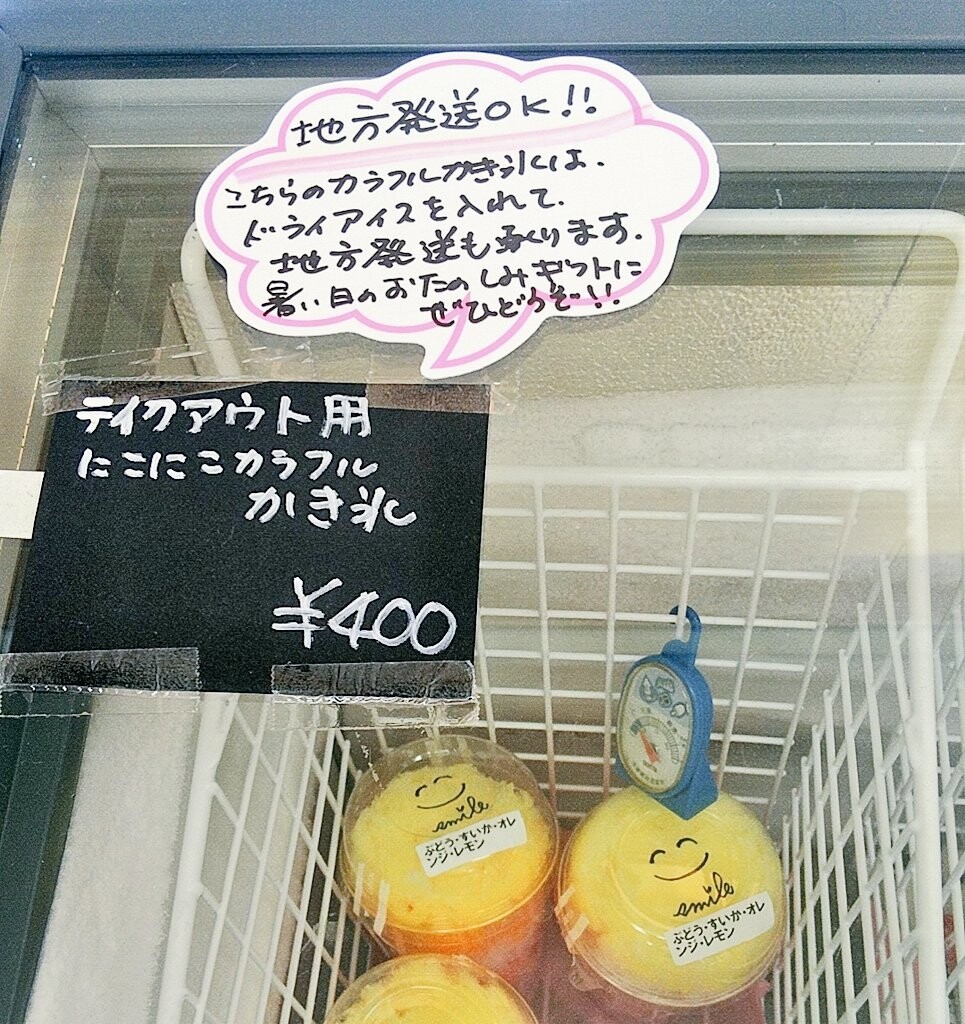 地方発送OK!!
こちらのカラフルかき氷は、
ドライアイスを入れて、
地方発送も承ります。
暑い日のおたのしみギフトに
ぜひどうぞ!!
テイクアウト用
にこにこカラフル
かき氷
¥400
smile
ぶどう・すいか・オレ
ンジ・レモン
smile
ぶどう・すいか・オレ
ンジ・レモン